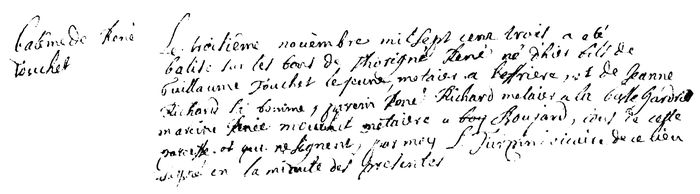 batême de René
Touchet
Le troisième novembre mil sept cent trois a été
batisé sur les fons de Thorigné René né d'hier fils de
Guillaume Touchet le jeune, métaier a et de Jeanne
Richard sa femme, parein René Richard metaier a la basse
mareine Renée metaiere a boy tous de cette
paroisse. et qui ne signent, par moy vicaire de ce lieu
en la minute des presentes